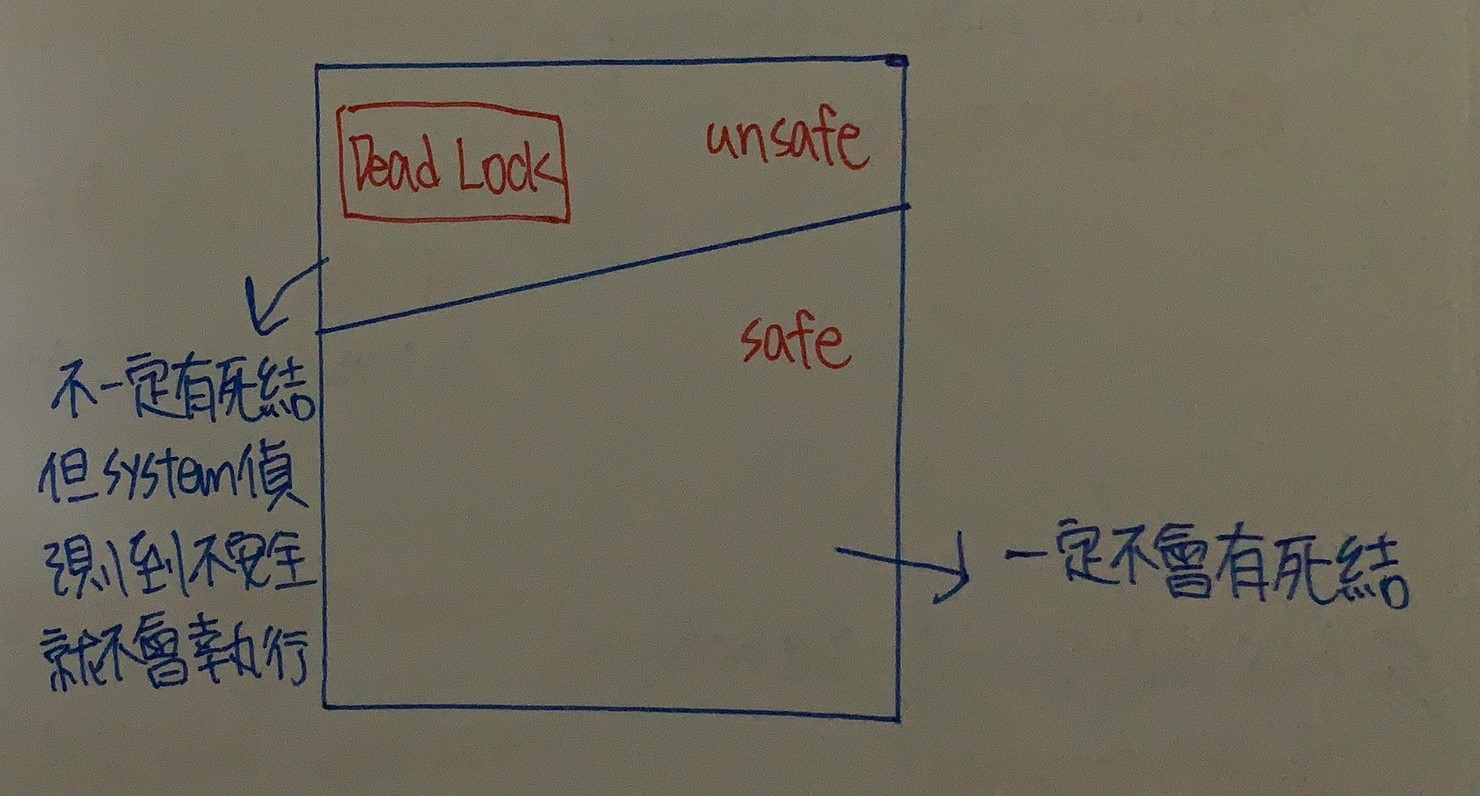 Dead Lock
unsafe
safe
不一定有死結
但system偵
測到不安全
就不會執行
一定不會有死結